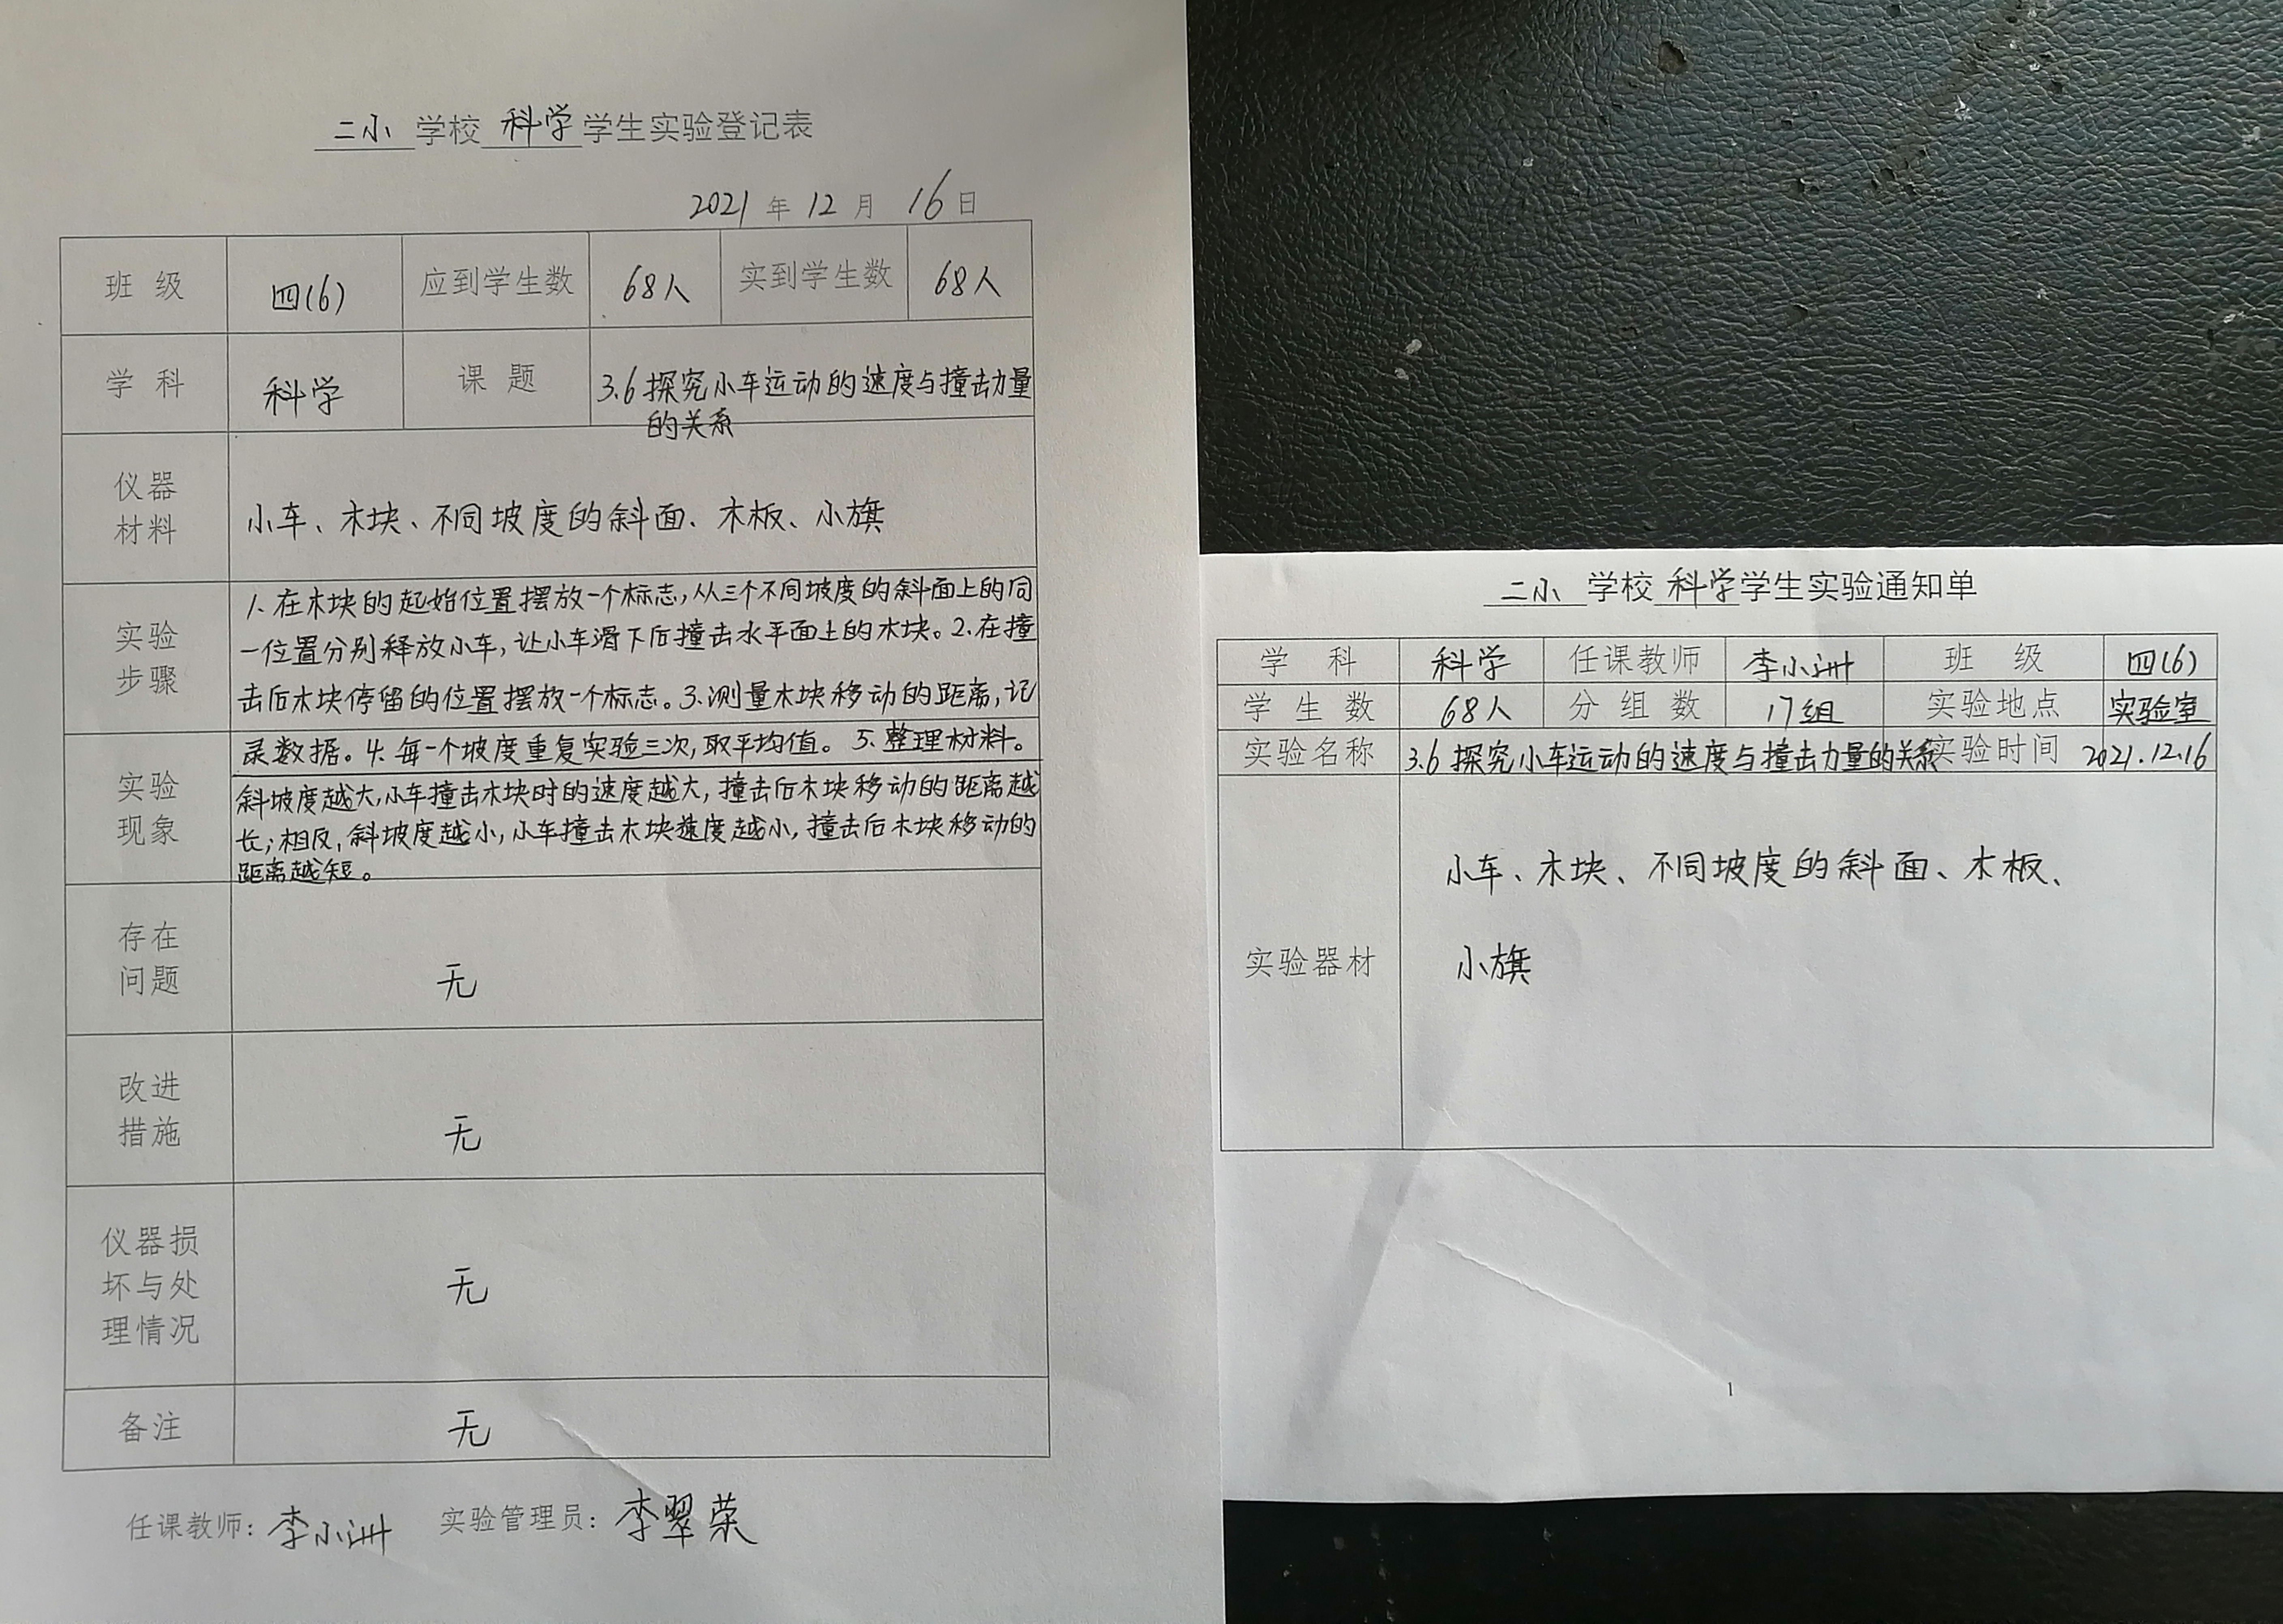 二小 学校 科学 学生实验登记表
2021 年 12 月 16 日
班 级 四(6) 应到学生数 68人 实到学生数 68人
学 科 科学 课 题 3.6 探究小车运动的速度与撞击力量
的关系
仪器
材料
小车、木块、不同坡度的斜面、木板、小旗
实验
步骤
1. 在木块的起始位置摆放一个标志,从三个不同坡度的斜面上的同
一位置分别释放小车,让小车滑下后撞击水平面上的木块。2.在撞
击后木块停留的位置摆放一个标志。3.测量木块移动的距离,记
录数据。4. 每一个坡度重复实验三次,取平均值。5. 整理材料。
实验
现象
斜坡度越大,小车撞击木块时的速度越大,撞击后木块移动的距离越
长;相反,斜坡度越小,小车撞击木块速度越小,撞击后木块移动的
距离越短。
存在
问题
无
改进
措施
无
仪器损
坏与处
理情况
无
备注 无
任课教师: 李小洲 实验管理员: 李翠荣
二小 学校 科学 学生实验通知单
学 科 科学 任课教师 李小洲 班 级 四(6)
学 生 数 68人 分 组 数 17组 实验地点 实验室
实验名称 3.6 探究小车运动的速度与撞击力量的关系 实验时间 2021.12.16
实验器材
小车、木块、不同坡度的斜面、木板、
小旗
1